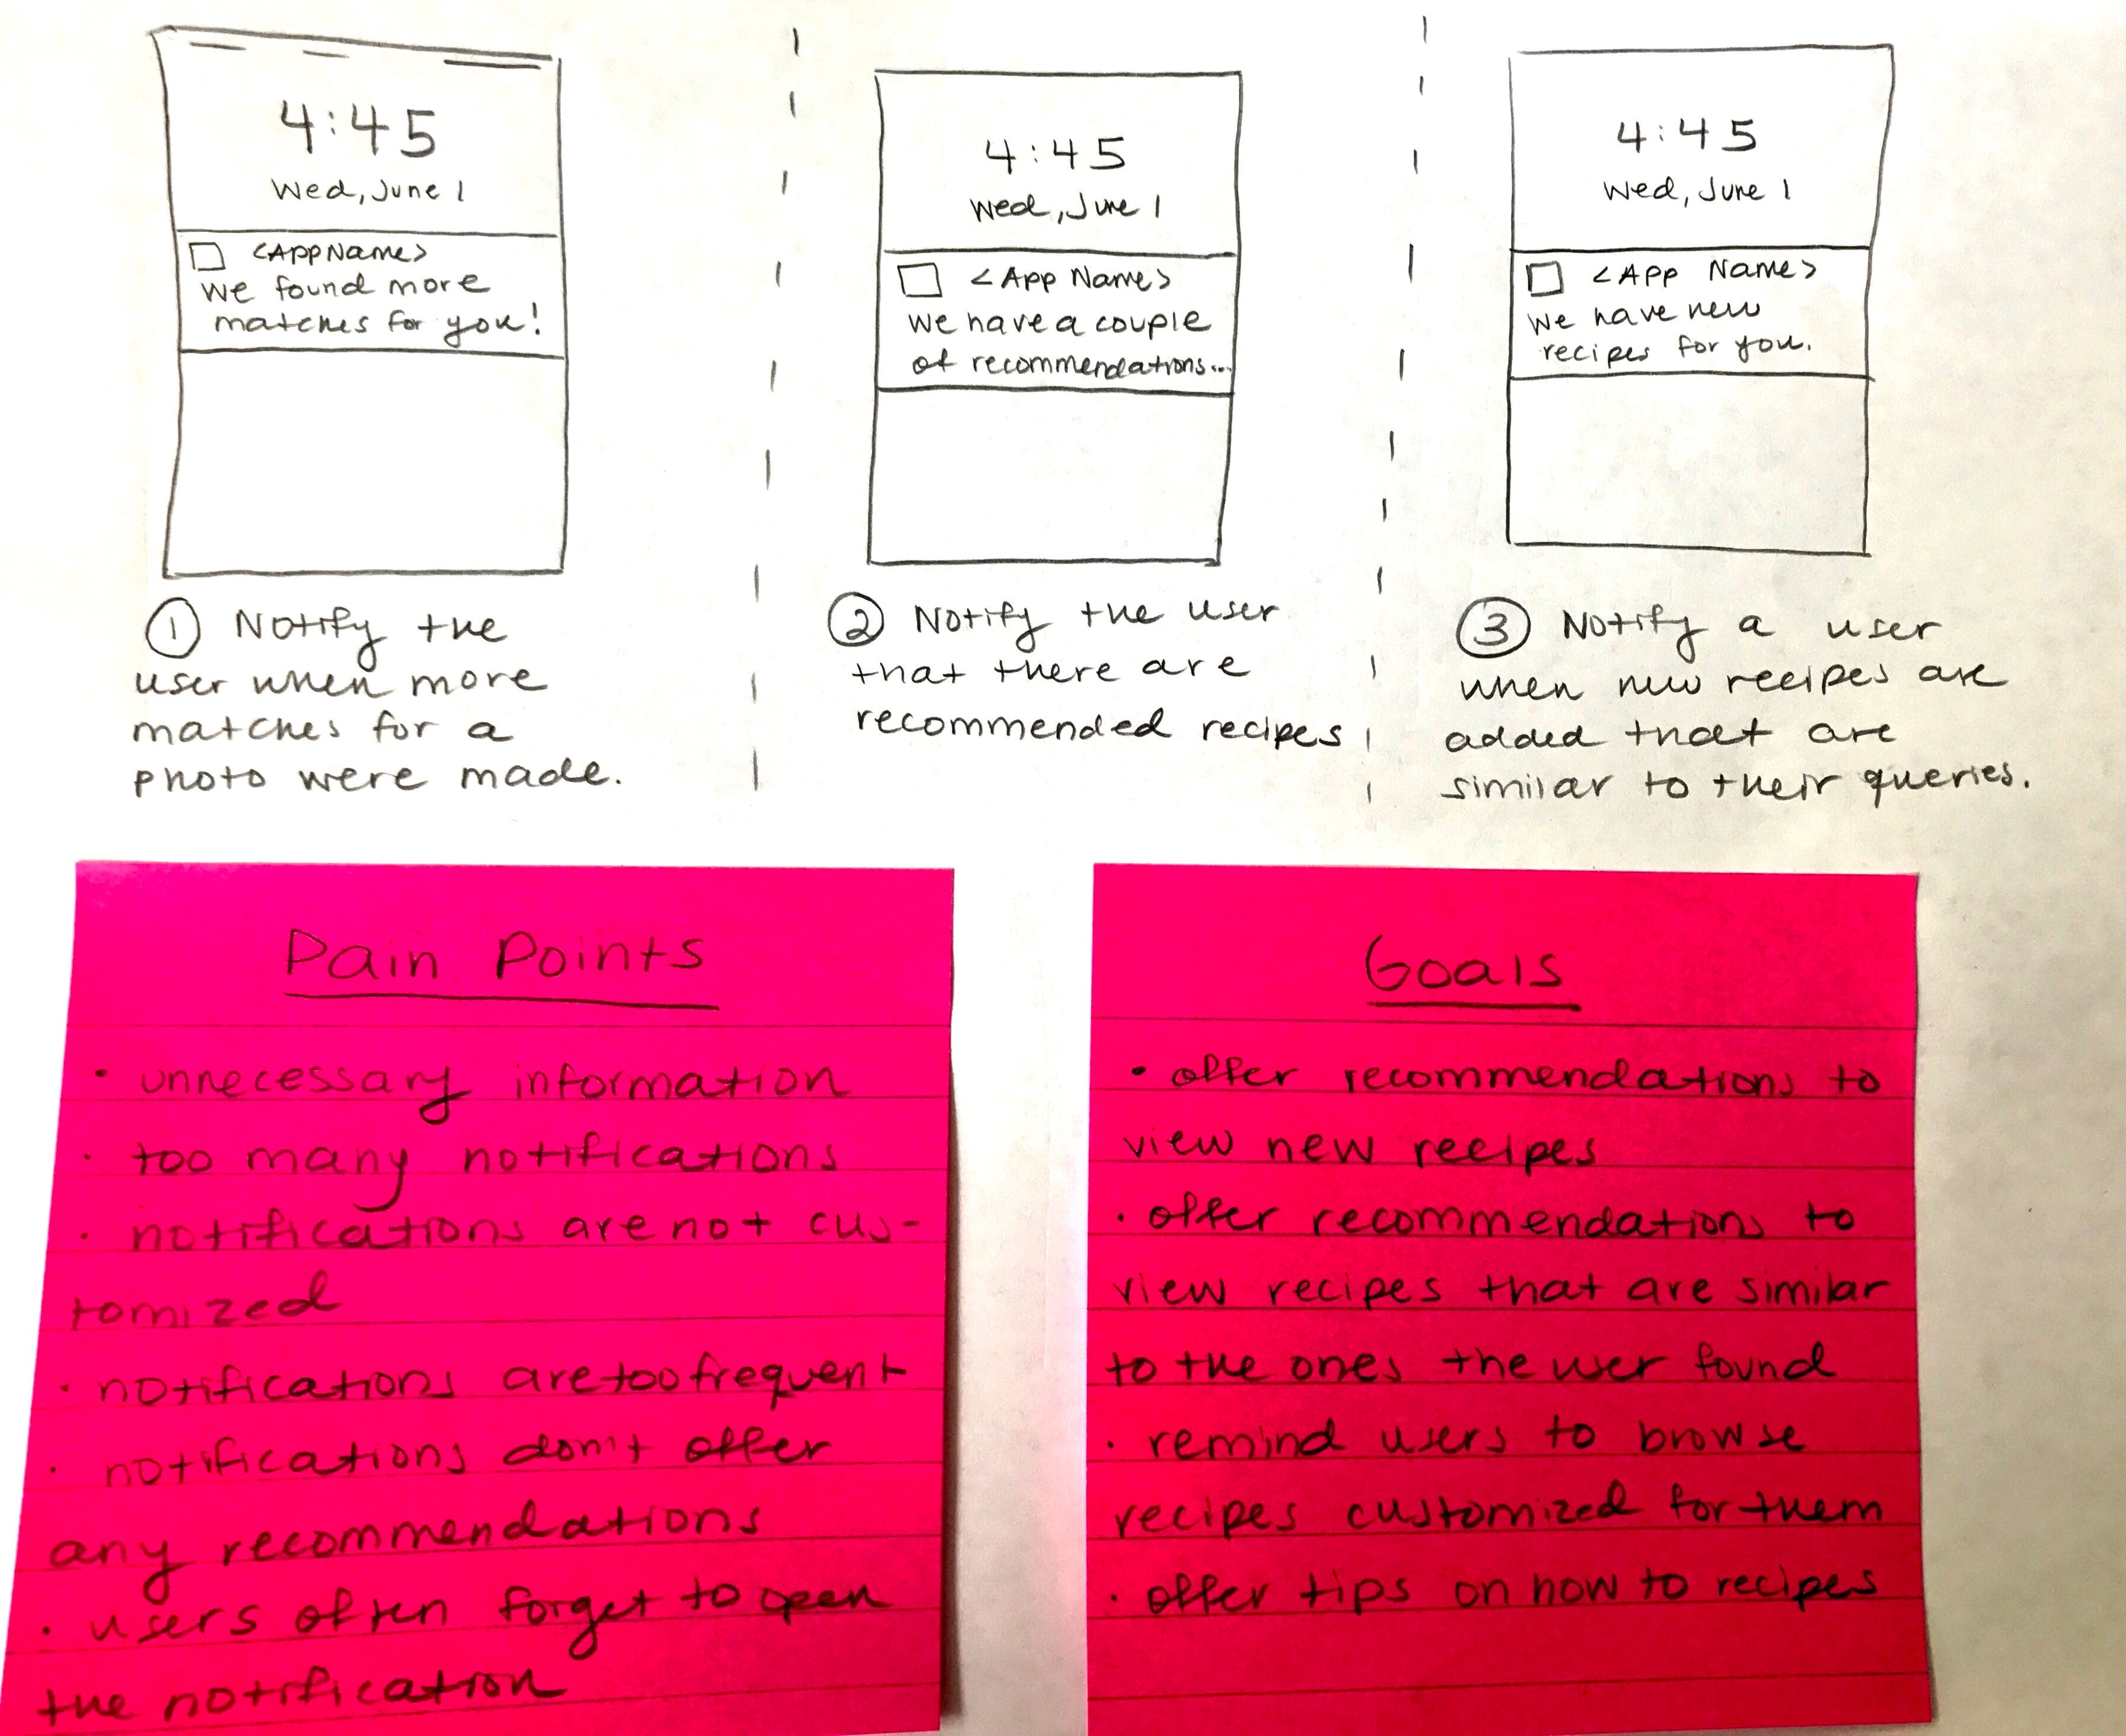 4:45
Wed, June 1
<App Name>
We found more
matches for you!
① Notify the
user when more
matches for a
photo were made.
4:45
Wed, June 1
<App Name>
We have a couple
of recommendations...
② Notify the user
that there are
recommended recipes
4:45
Wed, June 1
<App Name>
We have new
recipes for you.
③ Notify a user
when new recipes are
added that are
similar to their queries.
Pain Points
• unnecessary information
• too many notifications
• notifications are not cus-
tomized
• notifications are too frequent
• notifications don't offer
any recommendations
• users often forget to open
the notification
Goals
• offer recommendations to
view new recipes
• offer recommendations to
view recipes that are similar
to the ones the user found
• remind users to browse
recipes customized for them
• offer tips on how to recipes